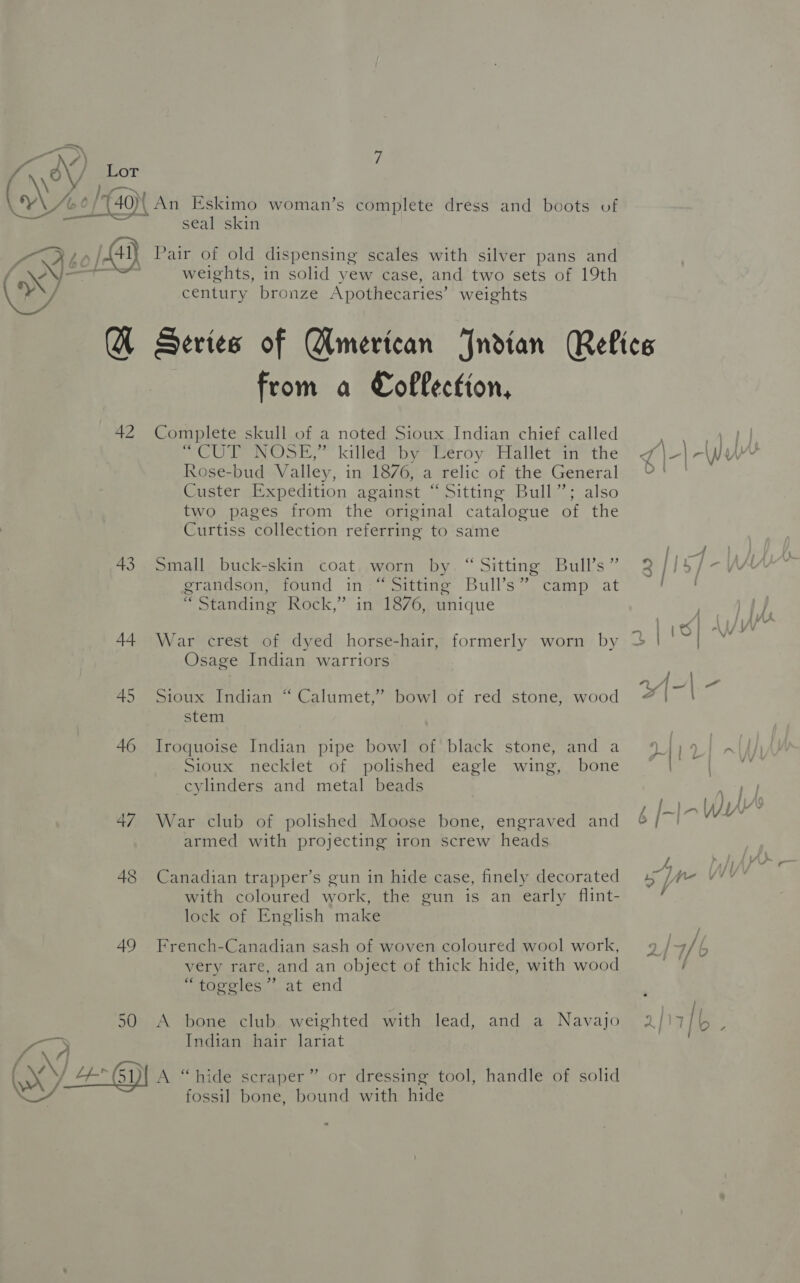 7
Lot
(40) An Eskimo woman's complete dress and boots of
seal skin
(41) Pair of old dispensing scales with silver pans and
weights, in solid yew case, and two sets of 19th
century bronze Apothecaries' weights
A Series of American Indian Relics
from a Collection.
42 Complete skull of a noted Sioux Indian chief called
"CUT NOSE," killed by Leroy Hallet in the
Rose-bud Valley, in 1876, a relic of the General
Custer Expedition against "Sitting Bull"; also
two pages from the original catalogue of the
Curtiss collection referring to same
43 Small buck-skin coat worn by "Sitting Bull's"
grandson, found in "Sitting Bull's" camp at
"Standing Rock," in 1876, unique
44 War crest of dyed horse-hair, formerly worn by
Osage Indian warriors
45 Sioux Indian "Calumet," bowl of red stone, wood
stem
46 Iroquoise Indian pipe bowl of black stone, and a
Sioux necklet of polished eagle wing, bone
cylinders and metal beads
47 War club of polished Moose bone, engraved and
armed with projecting iron screw heads
48 Canadian trapper's gun in hide case, finely decorated
with coloured work, the gun is an early flint-
lock of English make
49 French-Canadian sash of woven coloured wool work, 2/7/6
very rare, and an object of thick hide, with wood
"toggles" at end
50 A bone club weighted with lead, and a Navajo 2/17/6
Indian hair lariat
(51) A "hide scraper" or dressing tool, handle of solid
fossil bone, bound with hide